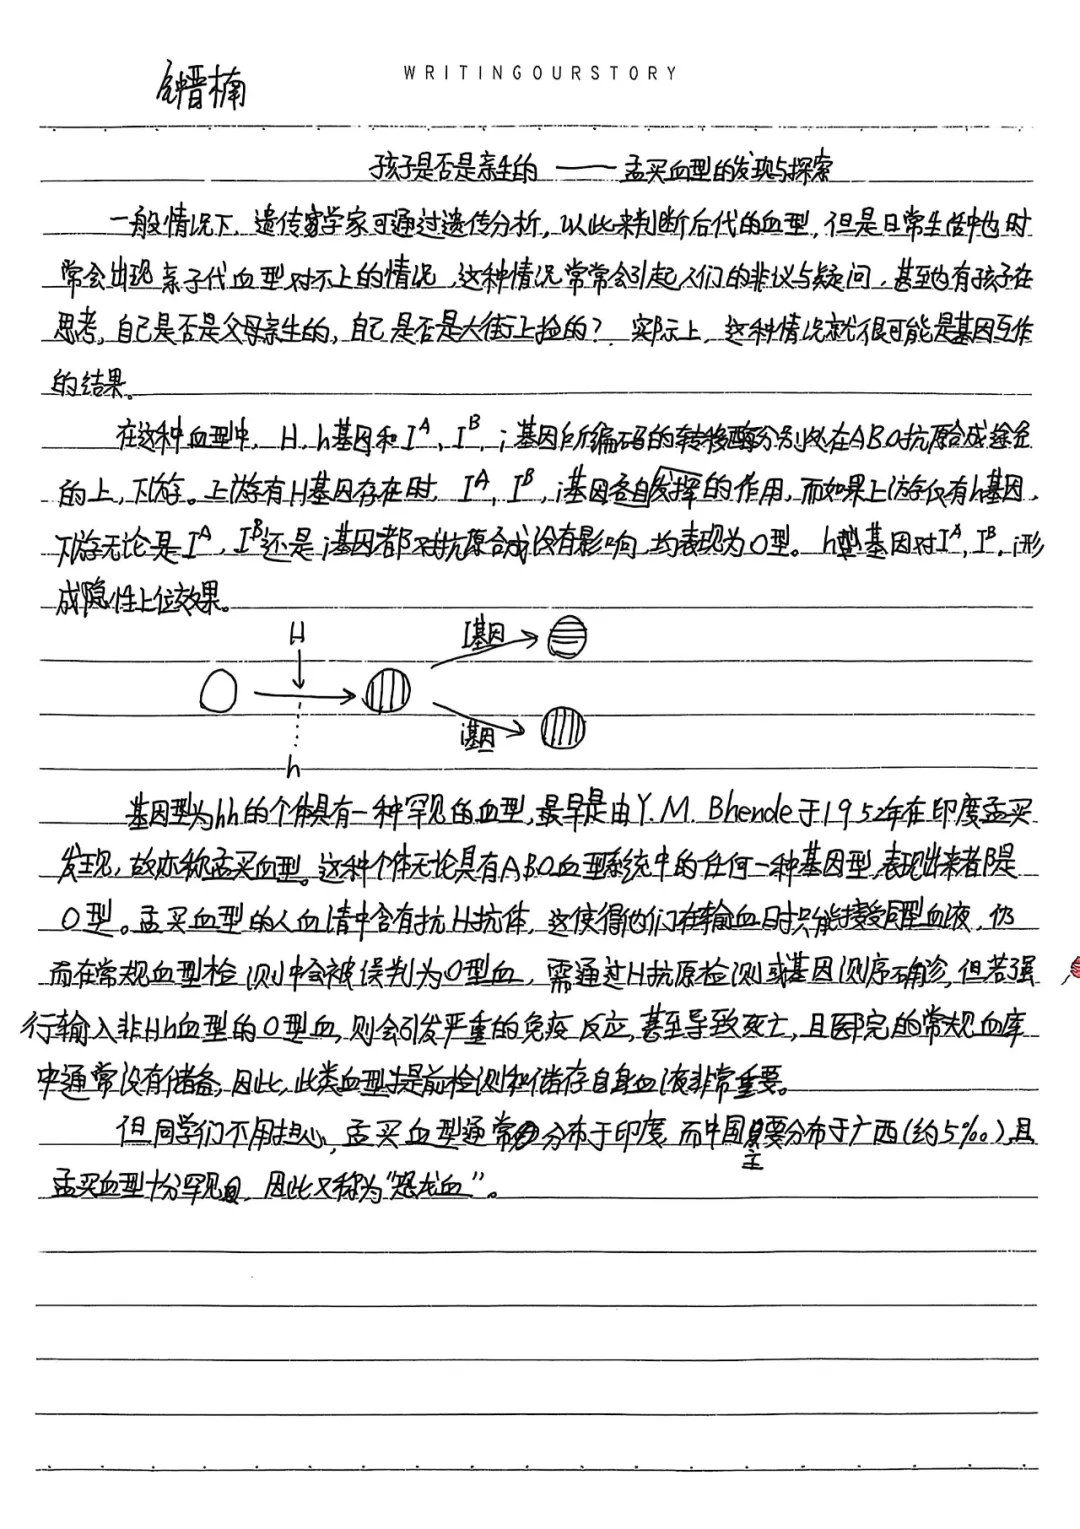 钟晋楠
WRITINGOURSTORY
孩子是否是亲生的 —— 孟买血型的发现与探索
一般情况下，遗传学家可通过遗传分析，以此来判断后代的血型，但是日常生活中也时
常会出现亲子代血型对不上的情况，这种情况常常会引起人们的非议与疑问，甚至也有孩子在
思考，自己是否是父母亲生的，自己是否是大街上捡的？实际上，这种情况就很可能是基因互作
的结果。
在这种血型中，H、h基因和Iᴬ、Iᴮ、i基因所编码的转移酶分别处在ABO抗原合成途径
的上，下游。上游有H基因存在时，Iᴬ、Iᴮ、i基因各自发挥的作用，而如果上游仅有h基因，
下游无论是Iᴬ，Iᴮ还是i基因都对抗原合成没有影响，均表现为O型。h型基因对Iᴬ，Iᴮ，i形
成隐性上位效果。
H
I基因
i基因
h
基因型为hh的个体具有一种罕见的血型，最早是由Y.M.Bhende于1952年在印度孟买
发现，故亦称孟买血型。这种个体无论具有ABO血型系统中的任何一种基因型，表现出来者都是
O型。孟买血型的人血清中含有抗H抗体，这使得他们在输血时只能接受同型血液，仍
而在常规血型检测中会被误判为O型血，需通过H抗原检测或基因测序确诊，但若强
行输入非Hh血型的O型血，则会引发严重的免疫反应，甚至导致死亡，且医院的常规血库
中通常没有储备，因此，此类血型提前检测和储存自身血液非常重要。
但同学们不用担心，孟买血型通常分布于印度，而中国主要分布于广西(约5‰)，且
孟买血型十分罕见，因此又称为“恐龙血”。